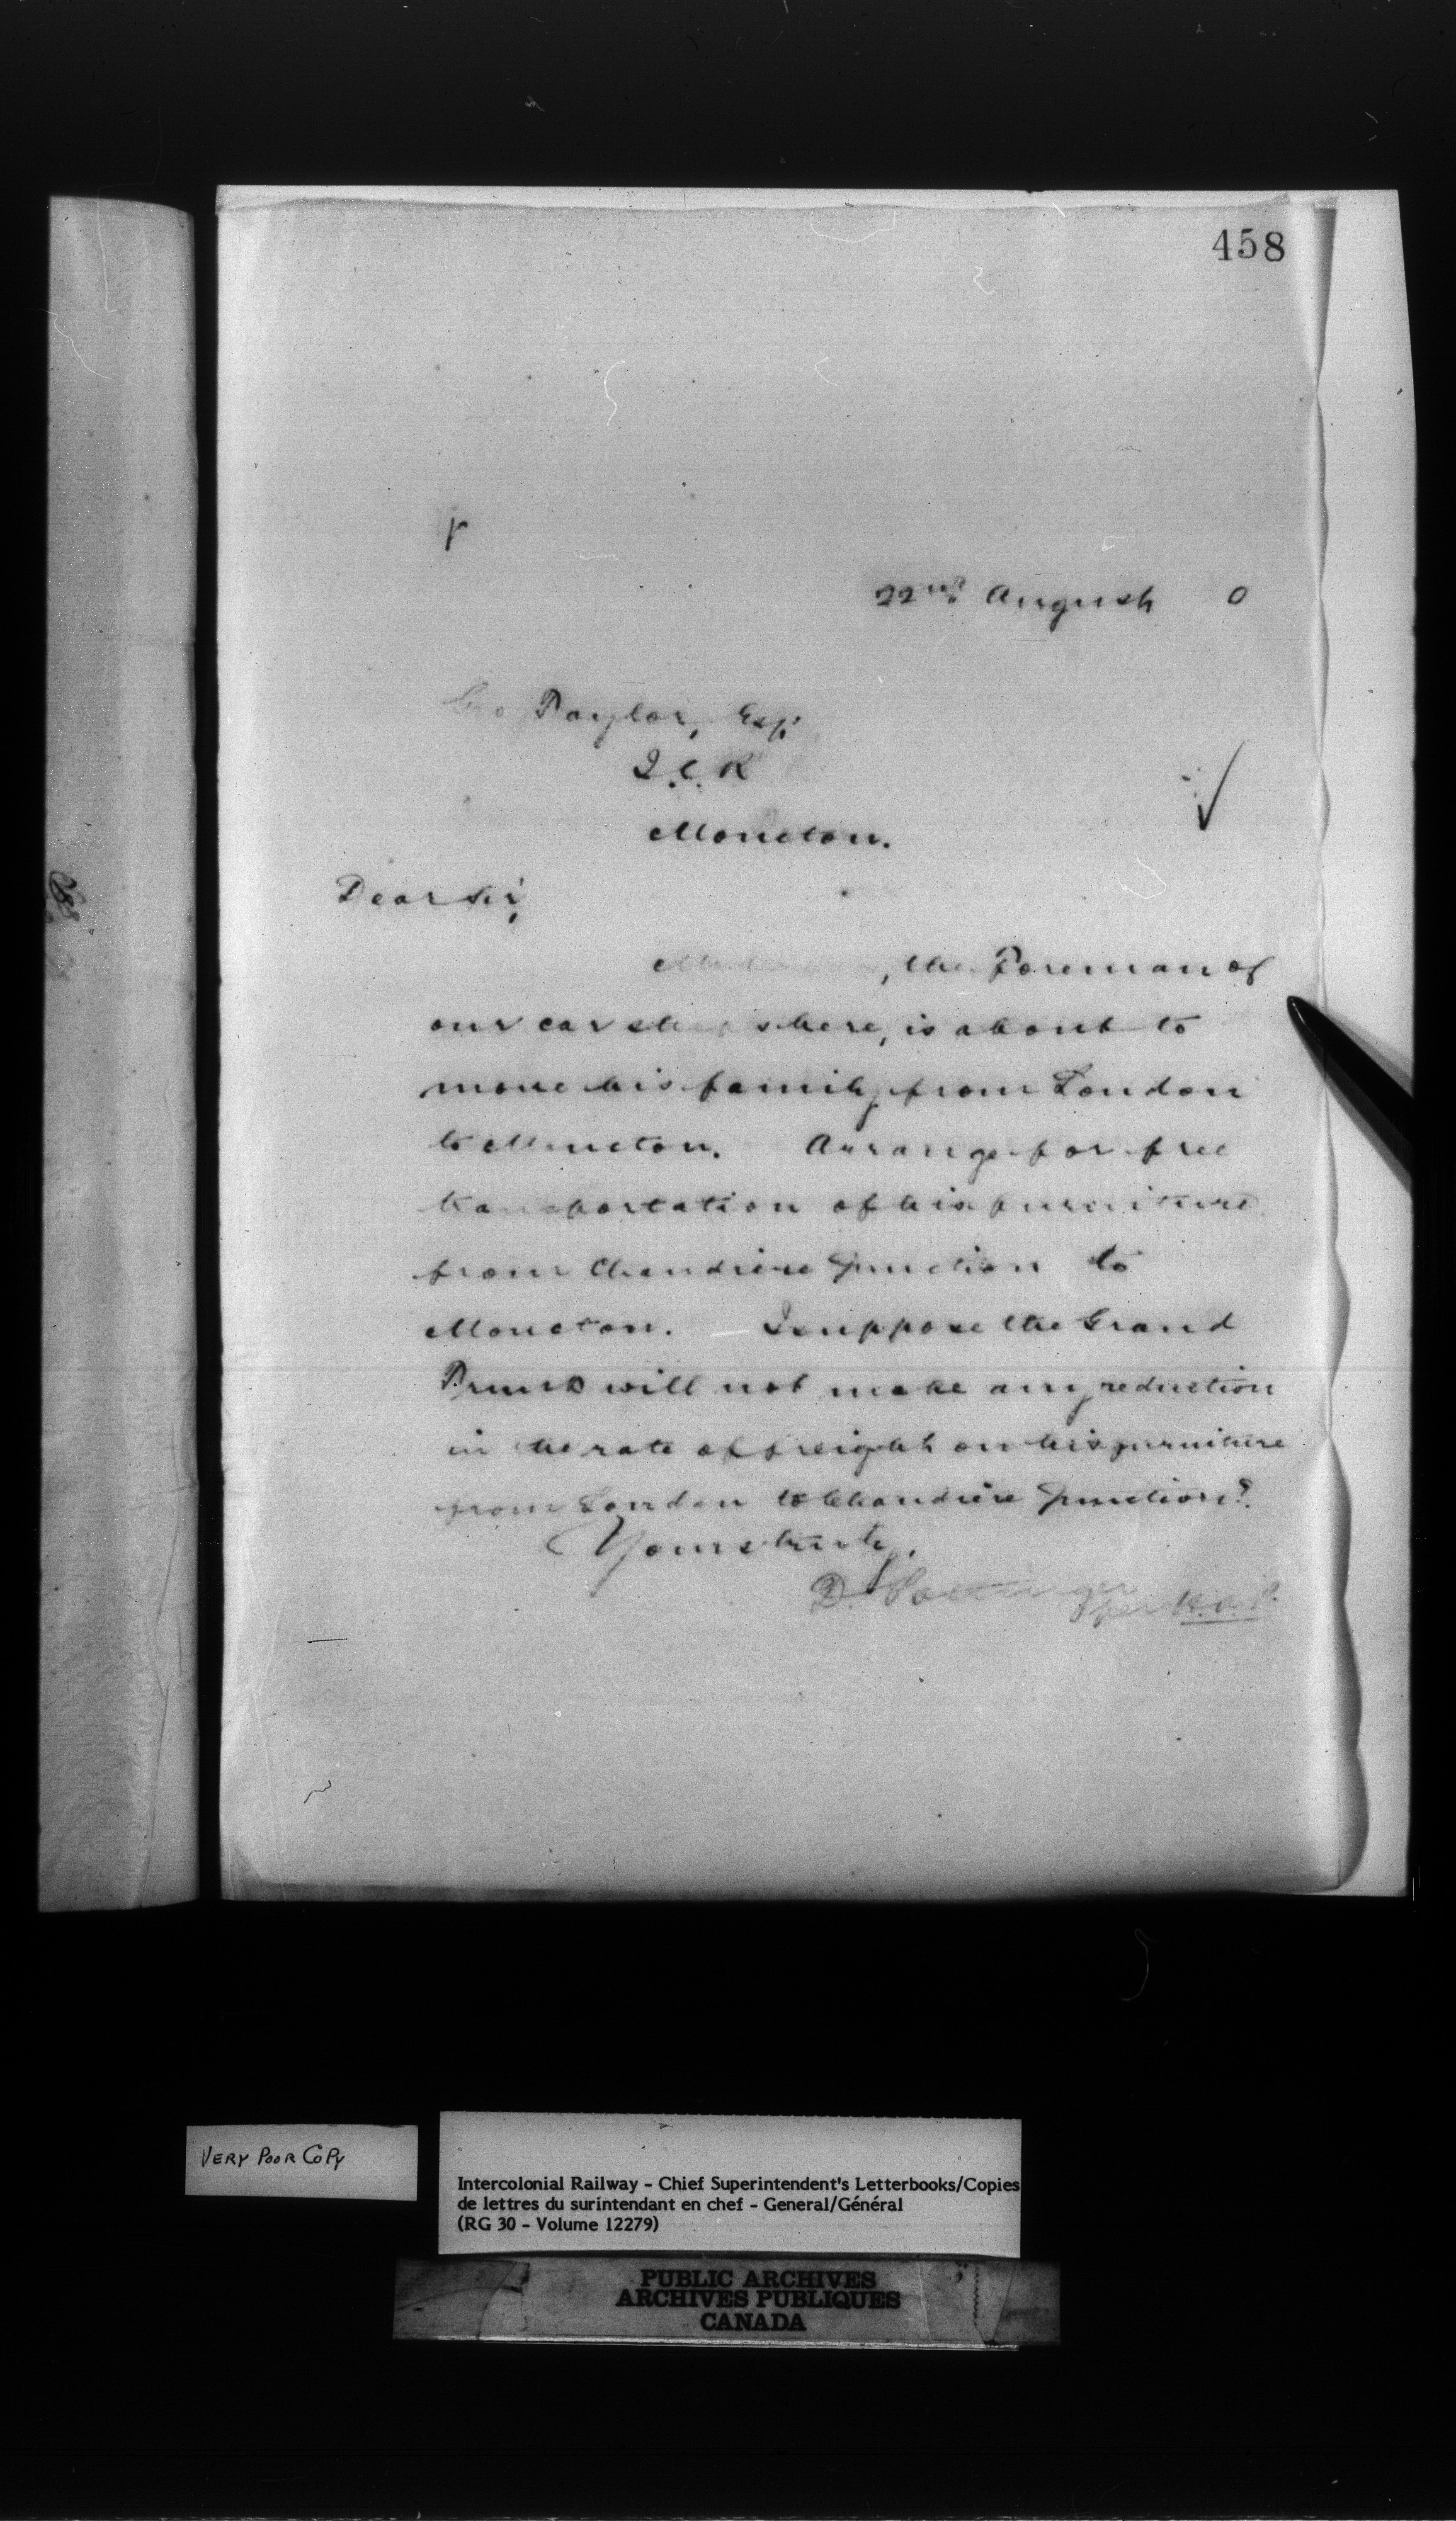 458
22nd August 0
Geo Taylor, Esq.
I.C.R
Moncton.
Dear Sir,
, the Foreman of
our car shops here, is about to
move his family from London
to Moncton. Arrange for free
transportation of his furniture
from Chaudiere Junction to
Moncton. I suppose the Grand
Trunk will not make any reduction
in the rate of freight on his furniture
from London to Chaudiere Junction?
Yours truly,
D. Pottinger
per
VERY POOR COPY
Intercolonial Railway - Chief Superintendent's Letterbooks/Copies
de lettres du surintendant en chef - General/Général
(RG 30 - Volume 12279)
PUBLIC ARCHIVES
ARCHIVES PUBLIQUES
CANADA